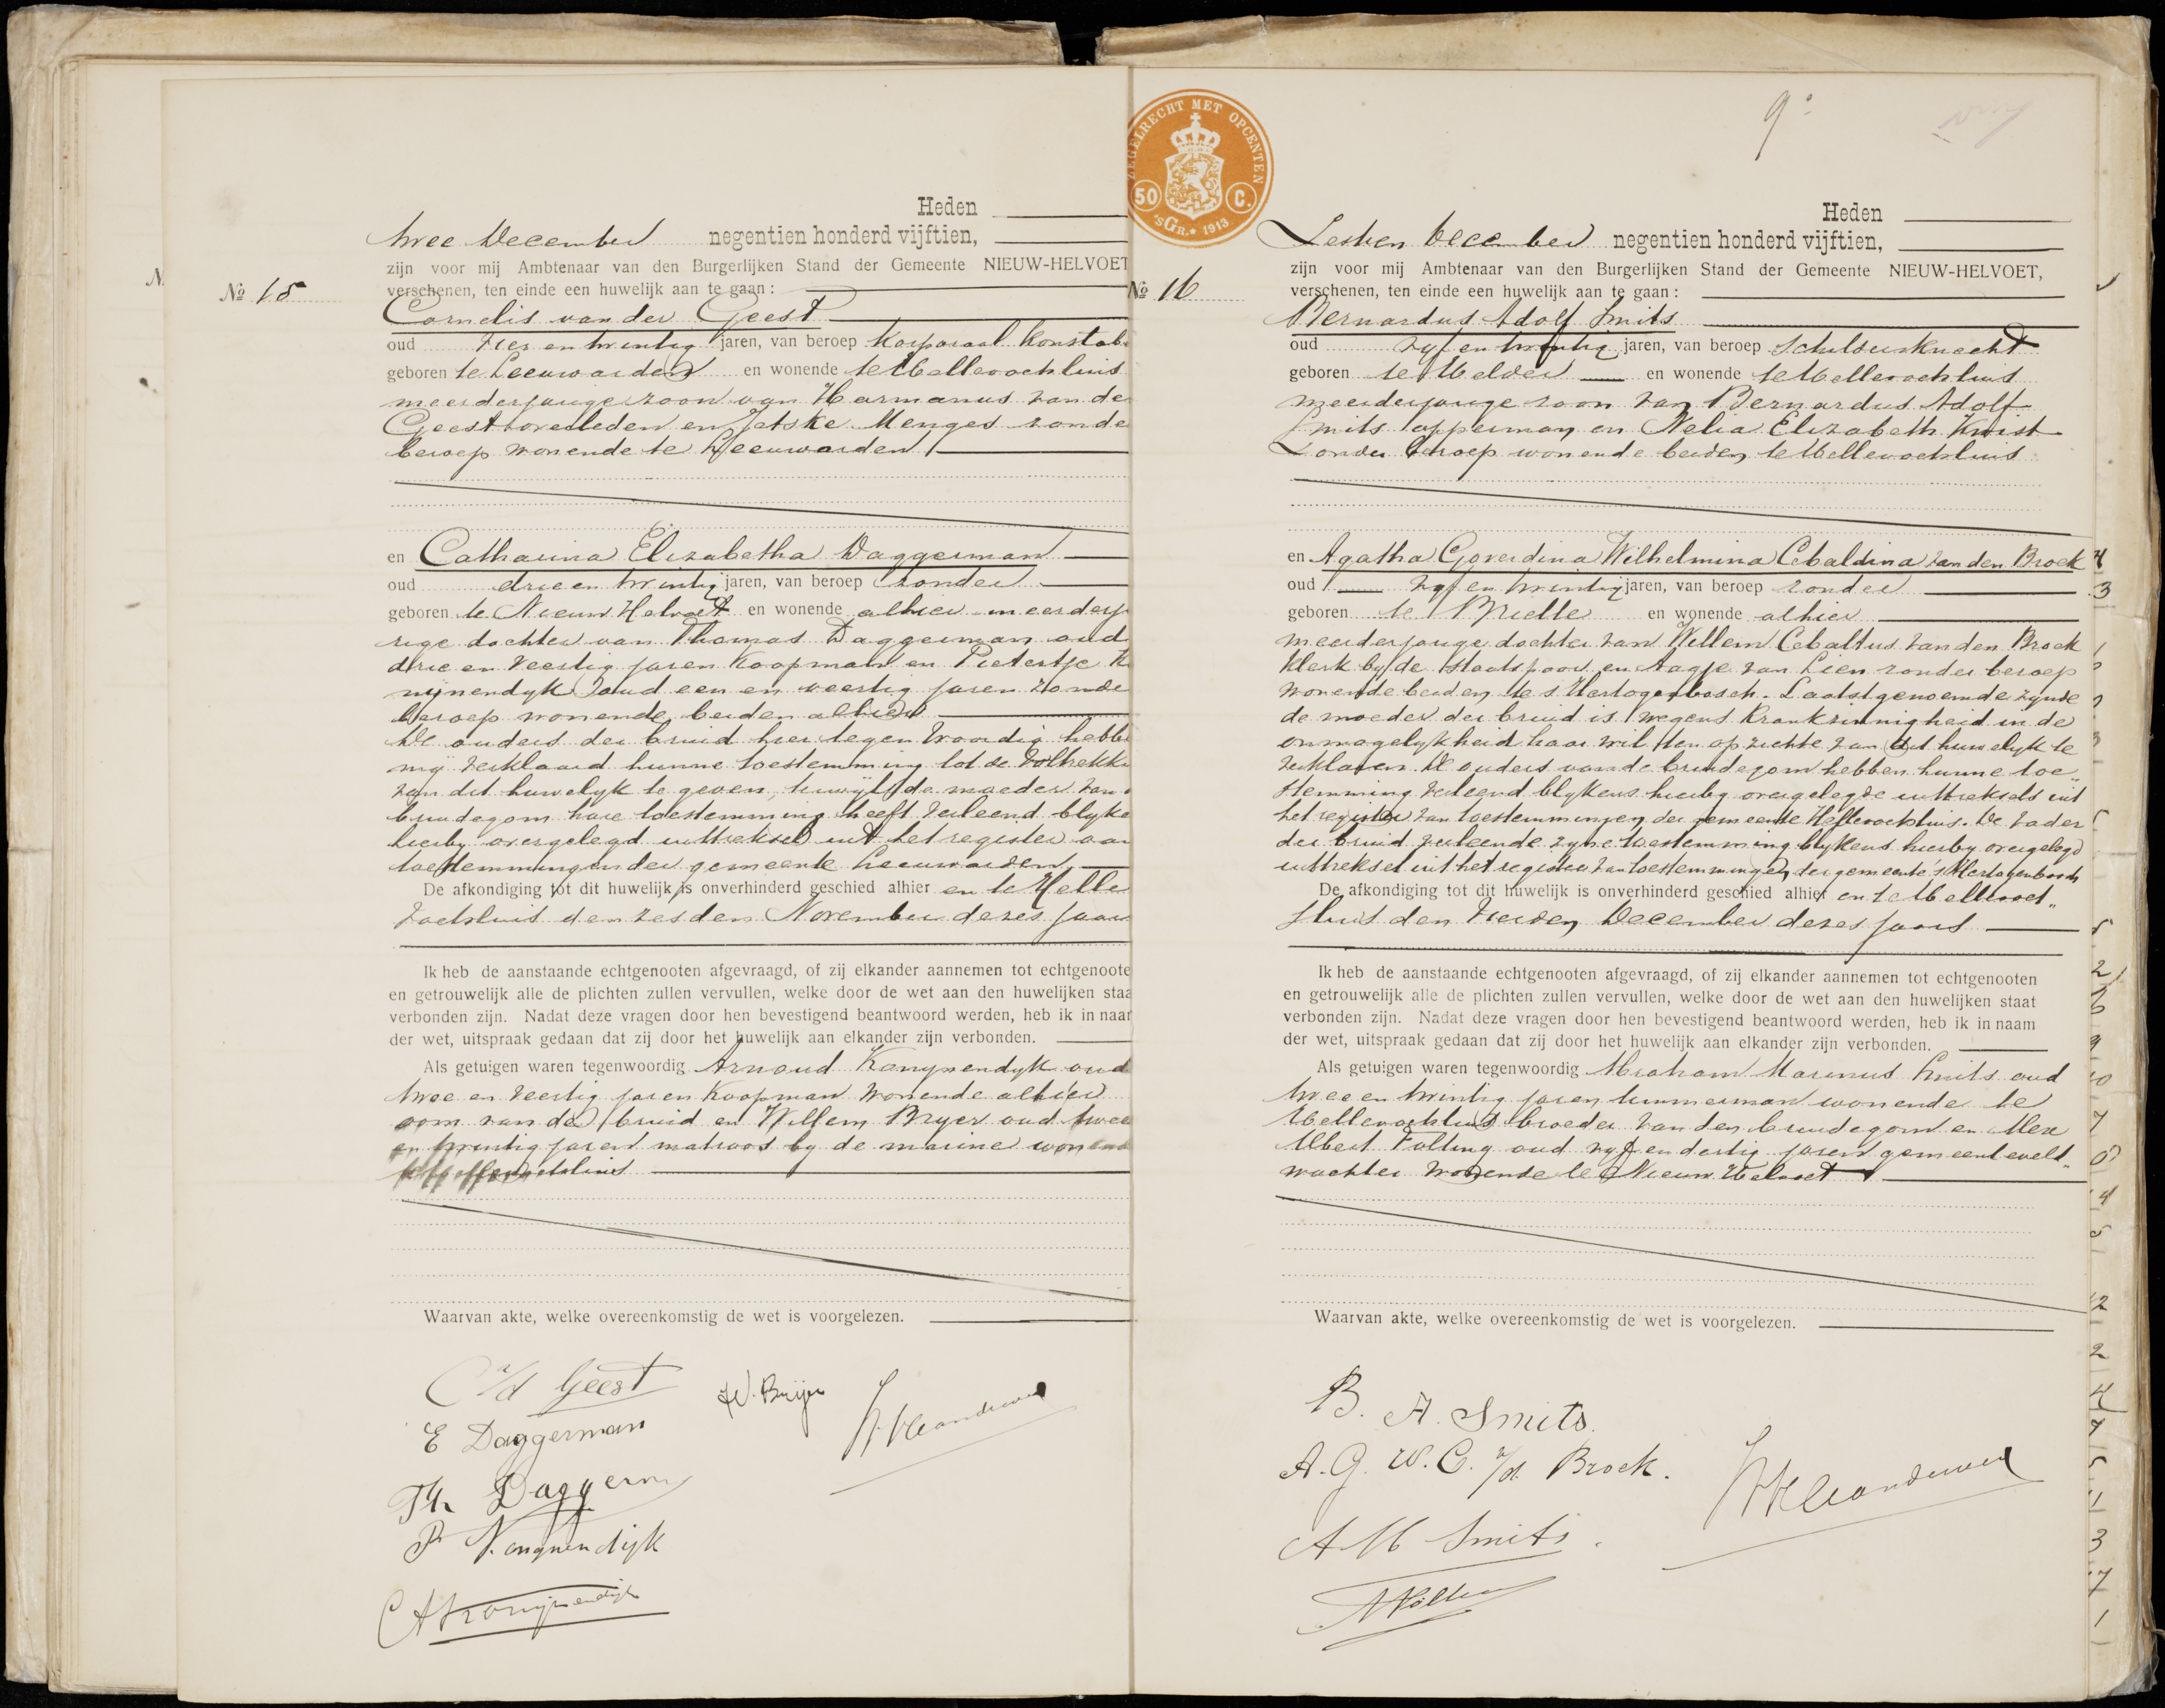 Nº 15
Heden
twee December negentien honderd vijftien,
zijn voor mij Ambtenaar van den Burgerlijken Stand der Gemeente NIEUW-HELVOET
verschenen, ten einde een huwelijk aan te gaan:
Cornelis van der Geest
oud vier en twintig jaren, van beroep Korporaal Konstab
geboren te Leeuwarden en wonende te Hellevoetsluis
meerderjarige zoon van Harmanus van de
Geest overleden en Jetske Menges zonde
beroep wonende te Leeuwarden
en Catharina Elizabetha Daggerman
oud drie en twintig jaren, van beroep zonder
geboren te Nieuw Helvoet en wonende alhier meerderja
rige dochter van Thomas Daggerman oud
drie en veertig jaren Koopman en Pietertje K
nijnendyk oud een en veertig jaren zonde
beroep wonende beiden alhier
De ouders der bruid hier tegenwoordig hebbe
mij verklaard hunne toestemming tot de voltrekki
van dit huwelyk te geven, terwijl de moeder van
bruidegom hare toestemming heeft verleend blyke
hierby overgelegd uittreksel uit het register van
toestemmingen der gemeente Leeuwarden
De afkondiging tot dit huwelijk is onverhinderd geschied alhier en te Helle
voetsluis den zesden November dezes jaars
Ik heb de aanstaande echtgenooten afgevraagd, of zij elkander aannemen tot echtgenoote
en getrouwelijk alle de plichten zullen vervullen, welke door de wet aan den huwelijken staa
verbonden zijn. Nadat deze vragen door hen bevestigend beantwoord werden, heb ik in naam
der wet, uitspraak gedaan dat zij door het huwelijk aan elkander zijn verbonden.
Als getuigen waren tegenwoordig Arnoud Konynendyk oud
twee en veertig jaren Koopman wonende alhier
oom van de bruid en Willem Bryer oud twee
en twintig jaren matroos by de marine wonende
te Hellevoetsluis
Waarvan akte, welke overeenkomstig de wet is voorgelezen.
C v/d Geest
W. Brijer
E Daggerman
Th Daggerm
P Konynendijk
A Konijnendijk
ZEGELRECHT MET OPCENTEN
50 C.
'sGR. 1913
9
Nº 16
Heden
Zesden December negentien honderd vijftien,
zijn voor mij Ambtenaar van den Burgerlijken Stand der Gemeente NIEUW-HELVOET,
verschenen, ten einde een huwelijk aan te gaan:
Bernardus Adolf Smits
oud vyf en twintig jaren, van beroep Schildersknecht
geboren te Helder en wonende te Hellevoetsluis
meerderjarige zoon van Bernardus Adolf
Smits opperman en Nelia Elizabeth Kwist
Zonder beroep wonende beiden te Hellevoetsluis
en Agatha Goverdina Wilhelmina Cebaldina van den Broek
oud vyf en twintig jaren, van beroep zonder
geboren te Brielle en wonende alhier
meerderjarige dochter van Willem Cebaltus van den Broek
Klerk by de staatspoor en Aagje van Lien zonder beroep
wonende beiden te s Hertogenbosch. Laatstgenoemde zynde
de moeder der bruid is wegens Krankzinnigheid in de
onmogelykheid haar wil ten opzichte van dit huwelyk te
verklaren. De ouders van de bruidegom hebben hunne toe„
stemming verleend blykens hierby overgelegde uittreksels uit
het register van toestemmingen der gemeente Hellevoetsluis. De vader
der bruid verleende zyne toestemming blykens hierby overgelegd
uittreksel uit het register van toestemmingen der gemeente 's Hertogenbosch
De afkondiging tot dit huwelijk is onverhinderd geschied alhier en te Hellevoet„
sluis den vierden December dezes jaars
Ik heb de aanstaande echtgenooten afgevraagd, of zij elkander aannemen tot echtgenooten
en getrouwelijk alle de plichten zullen vervullen, welke door de wet aan den huwelijken staat
verbonden zijn. Nadat deze vragen door hen bevestigend beantwoord werden, heb ik in naam
der wet, uitspraak gedaan dat zij door het huwelijk aan elkander zijn verbonden.
Als getuigen waren tegenwoordig Abraham Marinus Smits oud
twee en twintig jaren timmerman wonende te
Hellevoetsluis broeder van den bruidegom en Alex
Albert Folting oud vyf en dertig jaren gemeenteveld„
wachter wonende te Nieuw Helvoet
Waarvan akte, welke overeenkomstig de wet is voorgelezen.
B. A. Smits.
A. G. W. C. v/d Broek.
A M Smits.